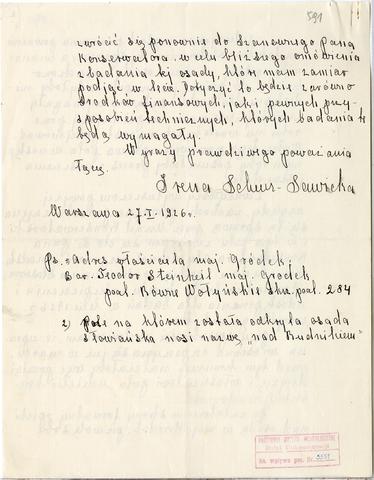 591
zwrócić się ponownie do Szanownego Pana
Konserwatora w celu bliższego omówienia
zbadania tej osady, które mam zamiar
podjąć w lecie. Dotyczyć to będzie zarówno
środków finansowych, jak i pewnych przy-
sposobień technicznych, których badania te
będą wymagały.
Wyrazy prawdziwego poważania
łączę
Irena Scheur-Sawicka
Warszawa 27.I.1926 r.
Ps. Adres właściciela maj. Gródek,
Bar. Teodor Steinheil maj. Gródek
pocz. Równe Wołyńskie Skr. poczt. 284
2) Pole na którem została odkryta osada
słowiańska nosi nazwę „nad Rudnikiem"
PAŃSTWOWE MUZEUM ARCHEOLOGICZNE
Dział Dokumentacji